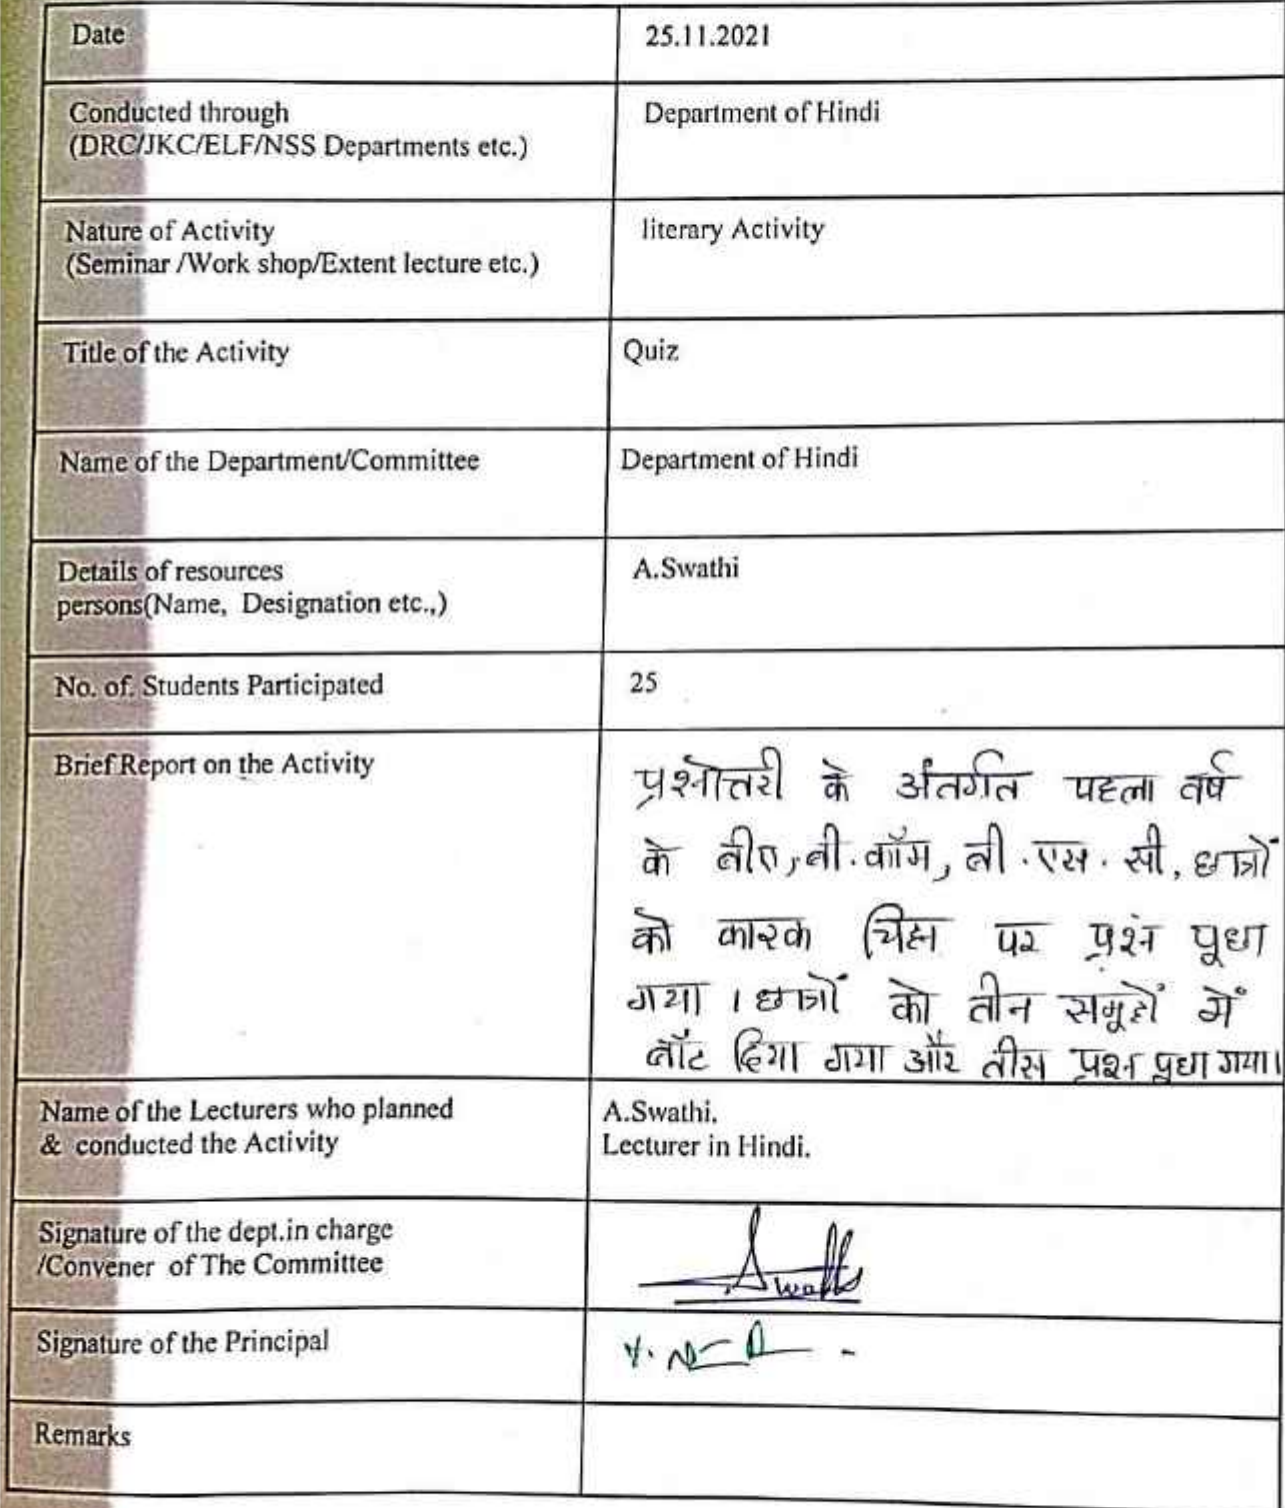 Date 25.11.2021
Conducted through Department of Hindi
(DRC/JKC/ELF/NSS Departments etc.)
Nature of Activity literary Activity
(Seminar /Work shop/Extent lecture etc.)
Title of the Activity Quiz
Name of the Department/Committee Department of Hindi
Details of resources A.Swathi
persons(Name, Designation etc.,)
No. of. Students Participated 25
Brief Report on the Activity
प्रश्नोत्तरी के अंतर्गत पहला वर्ष
के बीए, बी.कॉम, बी.एस.सी, छात्रों
को कारक चिह्न पर प्रश्न पूछा
गया । छात्रों को तीन समूहों में
बाँट दिया गया और तीस प्रश्न पूछा गया।
Name of the Lecturers who planned A.Swathi.
& conducted the Activity Lecturer in Hindi.
Signature of the dept.in charge
/Convener of The Committee
Swathi
Signature of the Principal
Remarks